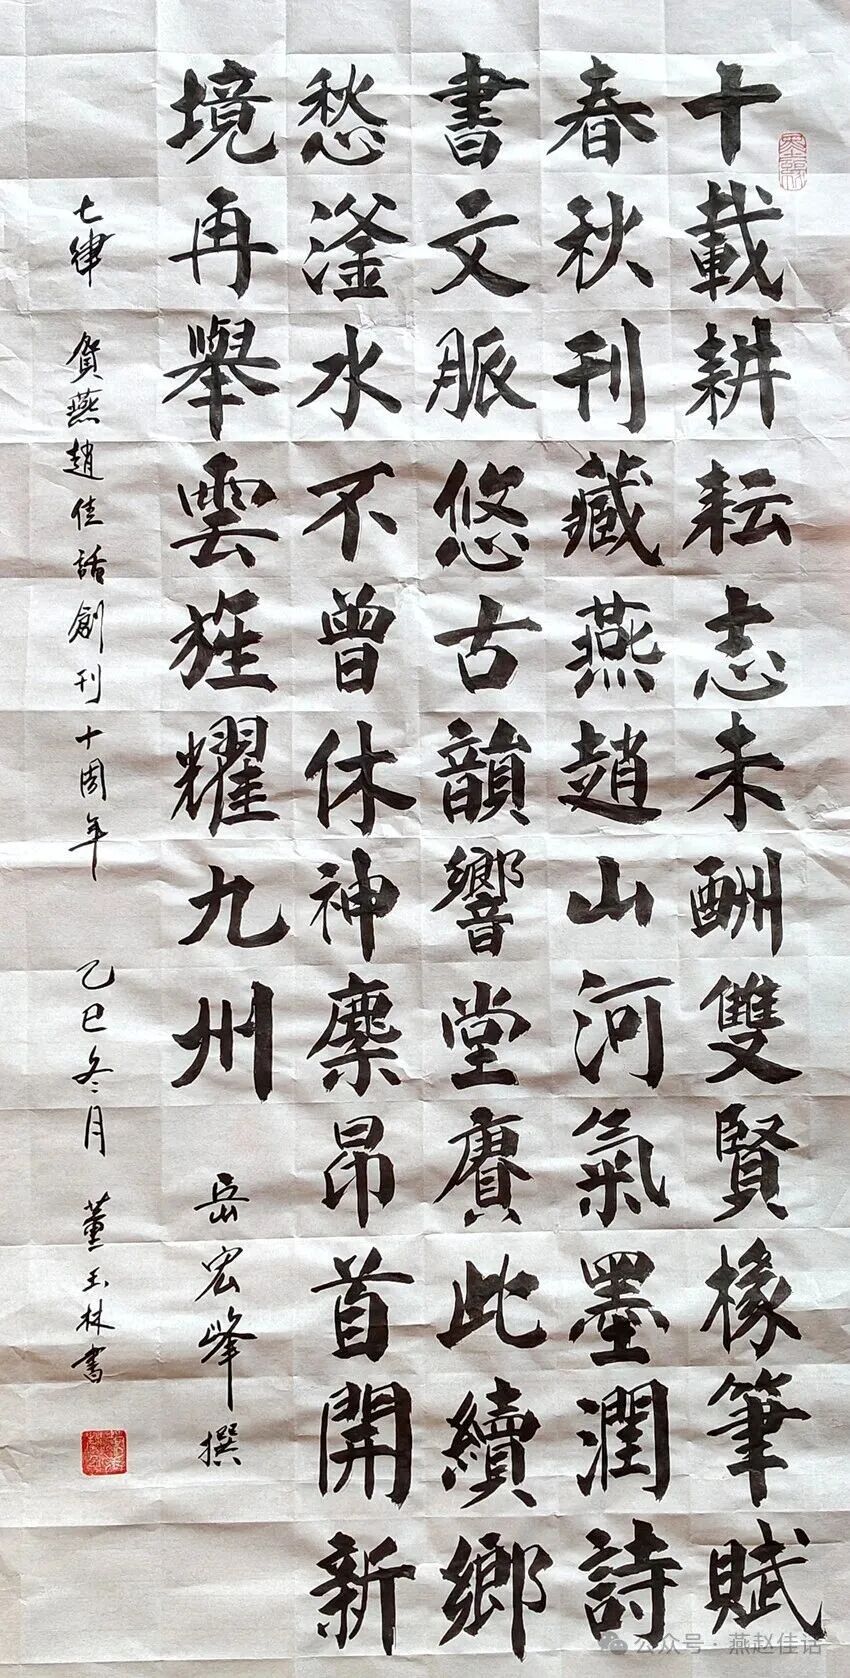 十載耕耘志未酬雙賢椽筆賦
春秋刊藏燕趙山河氣墨潤詩
書文脈悠古韻響堂賡此續鄉
愁滏水不曾休神麋昂首開新
境再舉雲旌耀九州
岳宏峰撰
七律 賀燕趙佳話創刊十周年 乙巳冬月 董玉林書
公众号·燕赵佳话